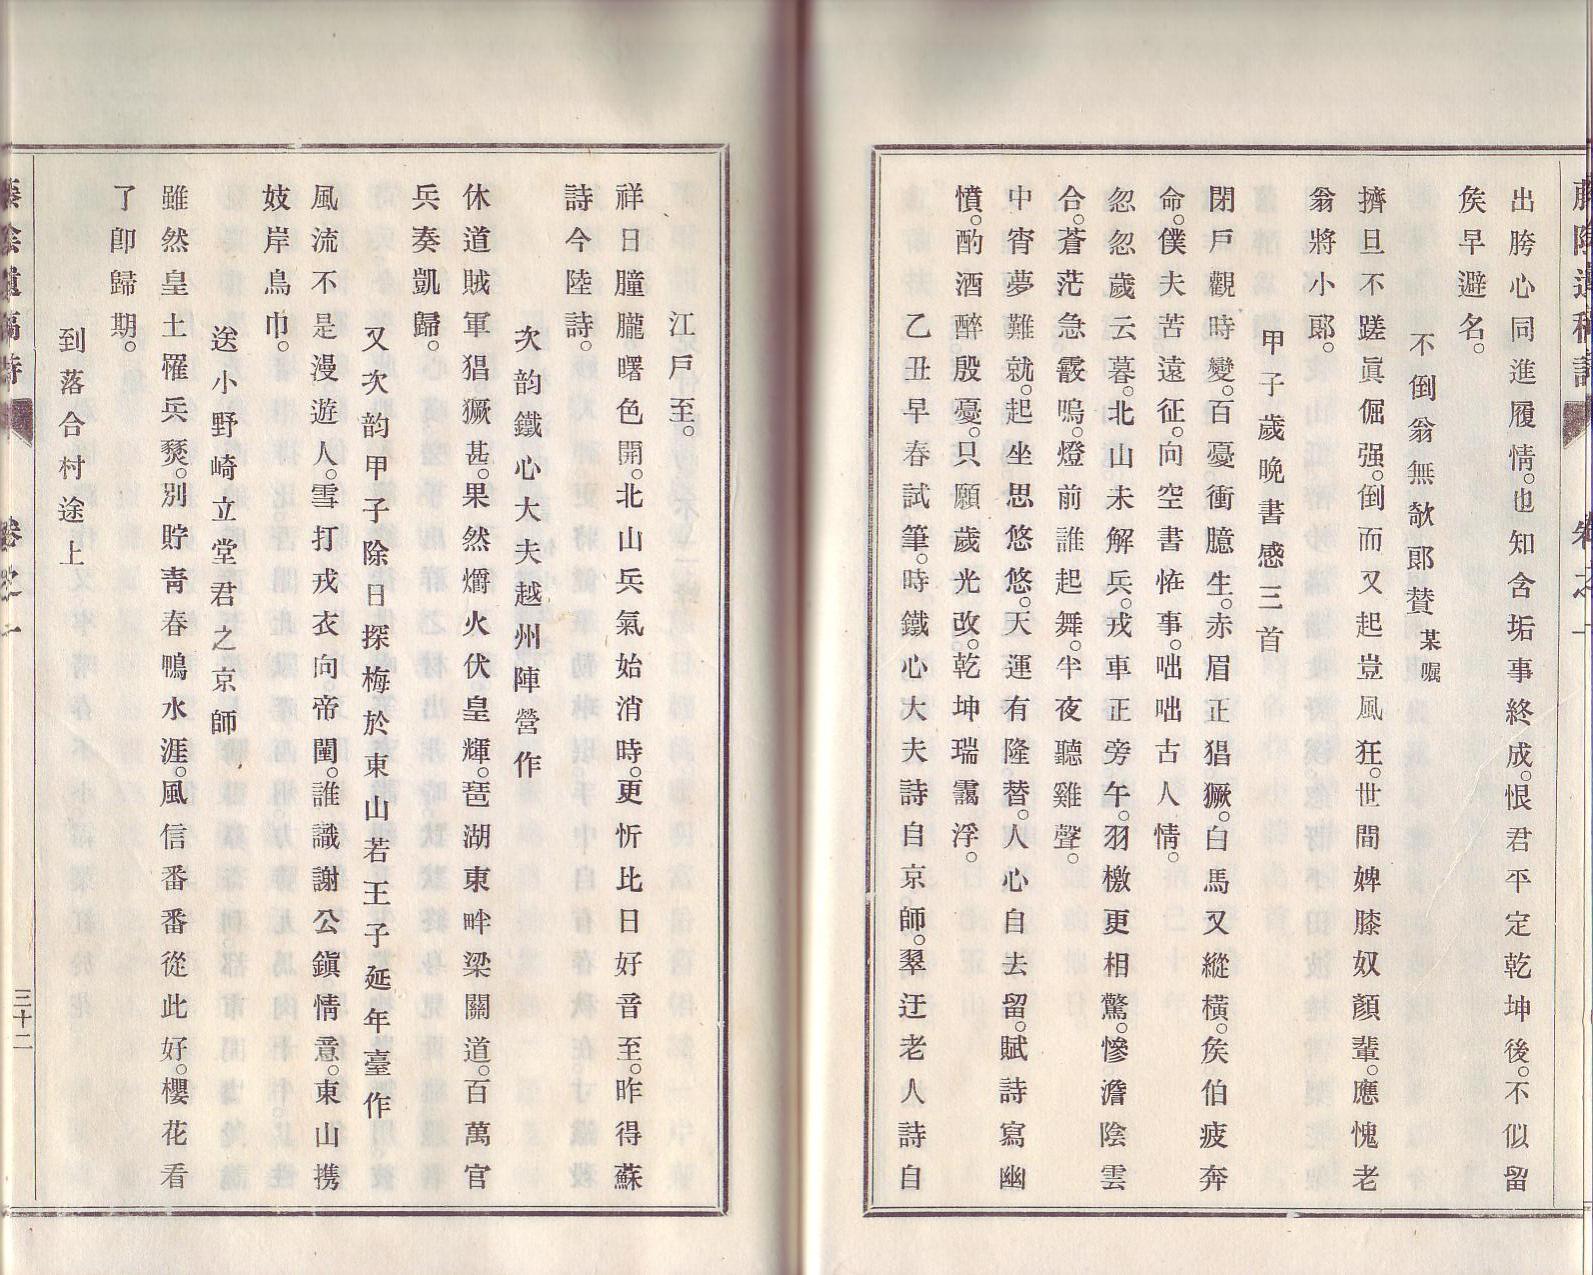 出胯心同進履情。也知含垢事終成。恨君平定乾坤後。不似留
矦早避名。
不倒翁無欹郞賛 某囑
擠且不蹉眞倔强。倒而又起豈風狂。世間婢膝奴顏輩。應愧老
翁將小郞。
甲子歲晚書感三首
閉戶觀時變。百憂衝臆生。赤眉正猖獗。白馬又縱橫。矦伯疲奔
命。僕夫苦遠征。向空書恠事。咄咄古人情。
忽忽歲云暮。北山未解兵。戎車正旁午。羽檄更相驚。慘澹陰雲
合。蒼茫急霰鳴。燈前誰起舞。半夜聽雞聲。
中宵夢難就。起坐思悠悠。天運有隆替。人心自去留。賦詩寫幽
憤。酌酒醉殷憂。只願歲光改。乾坤瑞靄浮。
乙丑早春試筆。時鐵心大夫詩自京師。翠迂老人詩自
江戶至。
祥日朣朧曙色開。北山兵氣始消時。更忻比日好音至。昨得蘇
詩今陸詩。
次韵鐵心大夫越州陣營作
休道賊軍猖獗甚。果然爝火伏皇輝。琶湖東畔梁關道。百萬官
兵奏凱歸。
又次韵甲子除日探梅於東山若王子延年臺作
風流不是漫遊人。雪打戎衣向帝闉。誰識謝公鎭情意。東山携
妓岸烏巾。
送小野崎立堂君之京師
雖然皇土罹兵燹。別貯靑春鴨水涯。風信番番從此好。櫻花看
了卽歸期。
到落合村途上
三十二